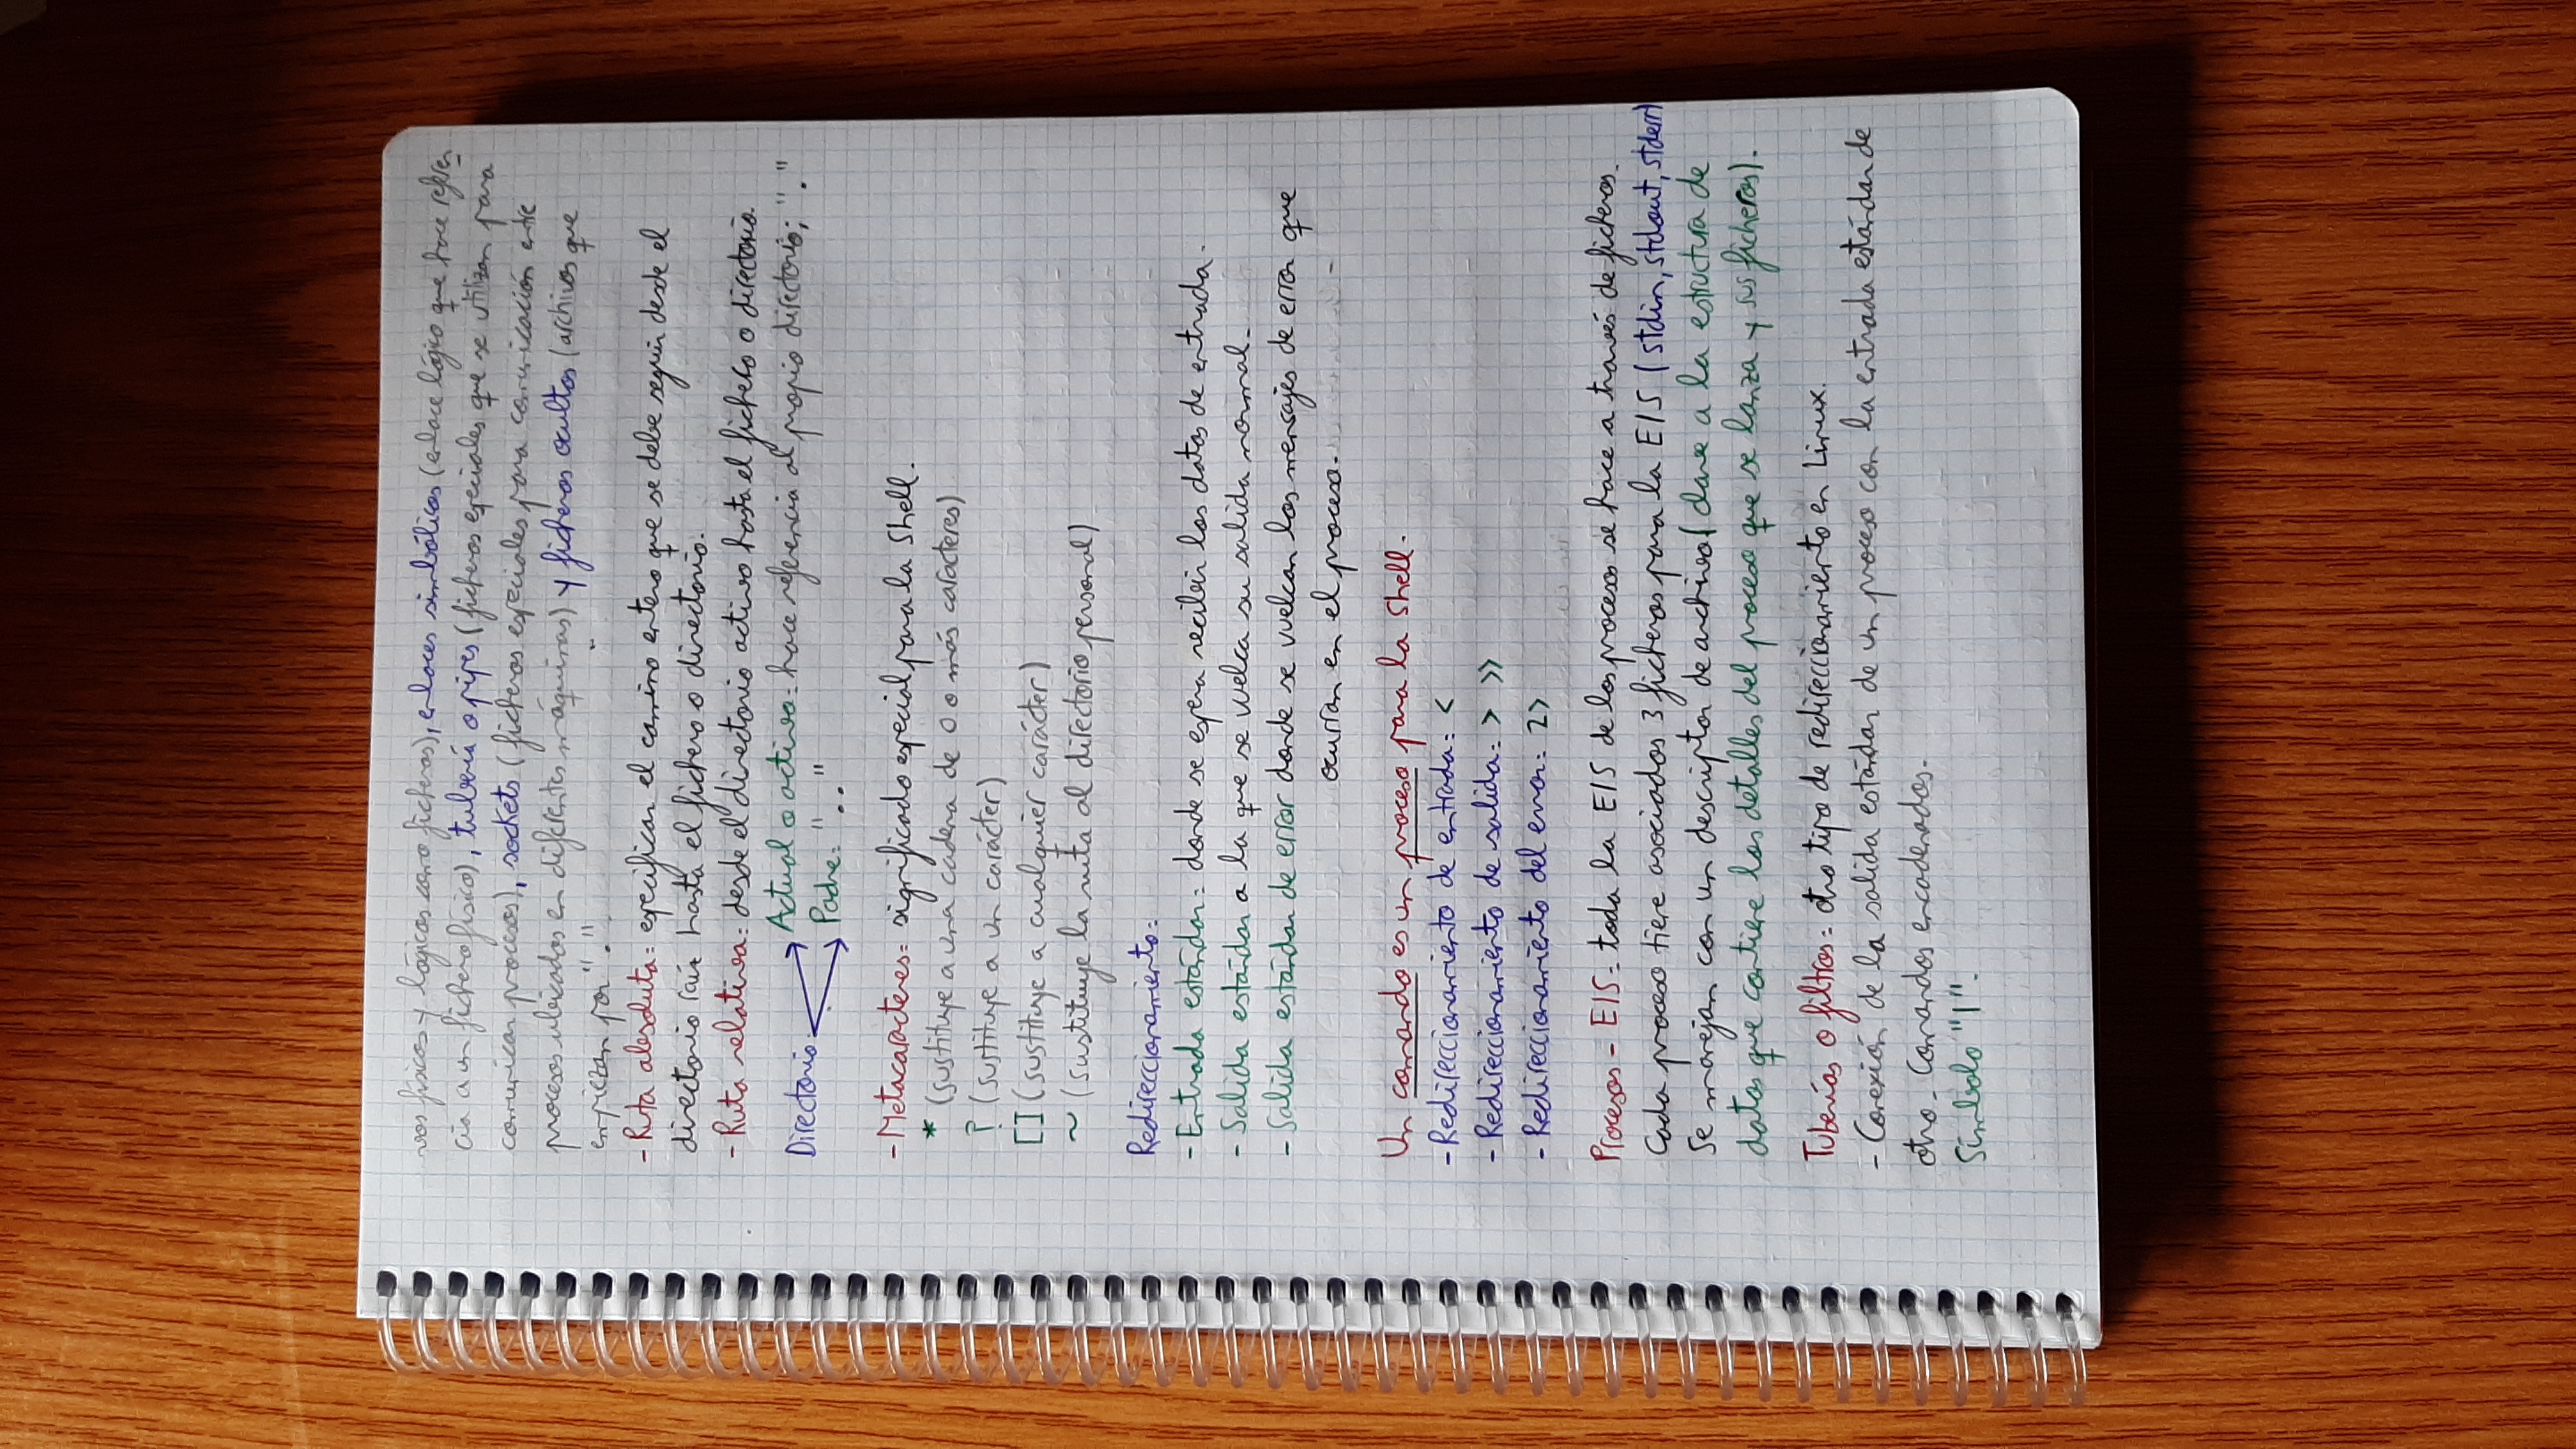 vos físicos y lógicos como ficheros), enlaces simbólicos (enlace lógico que hace referen
cia a un fichero físico), tubería o pipes (ficheros especiales que se utilizan para
comunicar procesos), sockets (ficheros especiales para comunicación entre
procesos ubicados en diferentes máquinas) y ficheros ocultos (archivos que
empiezan por ".".
- Ruta absoluta: especificar el camino entero que se debe seguir desde el
directorio raíz hasta el fichero o directorio.
- Ruta relativa: desde el directorio activo hasta el fichero o directorio.
Actual o activo: hace referencia al propio directorio; "."
Directorio
Padre: ".."
- Metacaracteres: significado especial para la Shell.
* (sustituye a una cadena de 0 o más caracteres)
? (sustituye a un carácter)
[] (sustituye a cualquier carácter)
~ (sustituye la ruta al directorio personal)
Redireccionamiento:
- Entrada estándar: donde se espera recibir los datos de entrada.
- Salida estándar a la que se vuelca su salida normal.
- Salida estándar de error donde se vuelcan los mensajes de error que
ocurran en el proceso.
Un comando es un proceso para la Shell.
- Redireccionamiento de entrada: <
- Redireccionamiento de salida: > >>
- Redireccionamiento del error: 2>
Procesos - E/S: toda la E/S de los procesos se hace a través de ficheros.
Cada proceso tiene asociados 3 ficheros para la E/S (stdin, stdout, stderr)
Se manejan con un descriptor de archivo (clave a la estructura de
datos que contiene los detalles del proceso que se lanza y sus ficheros).
Tuberías o filtros: otro tipo de redireccionamiento en Linux.
- Conexión de la salida estándar de un proceso con la entrada estándar de
otro. Comandos encadenados.
Símbolo "|".